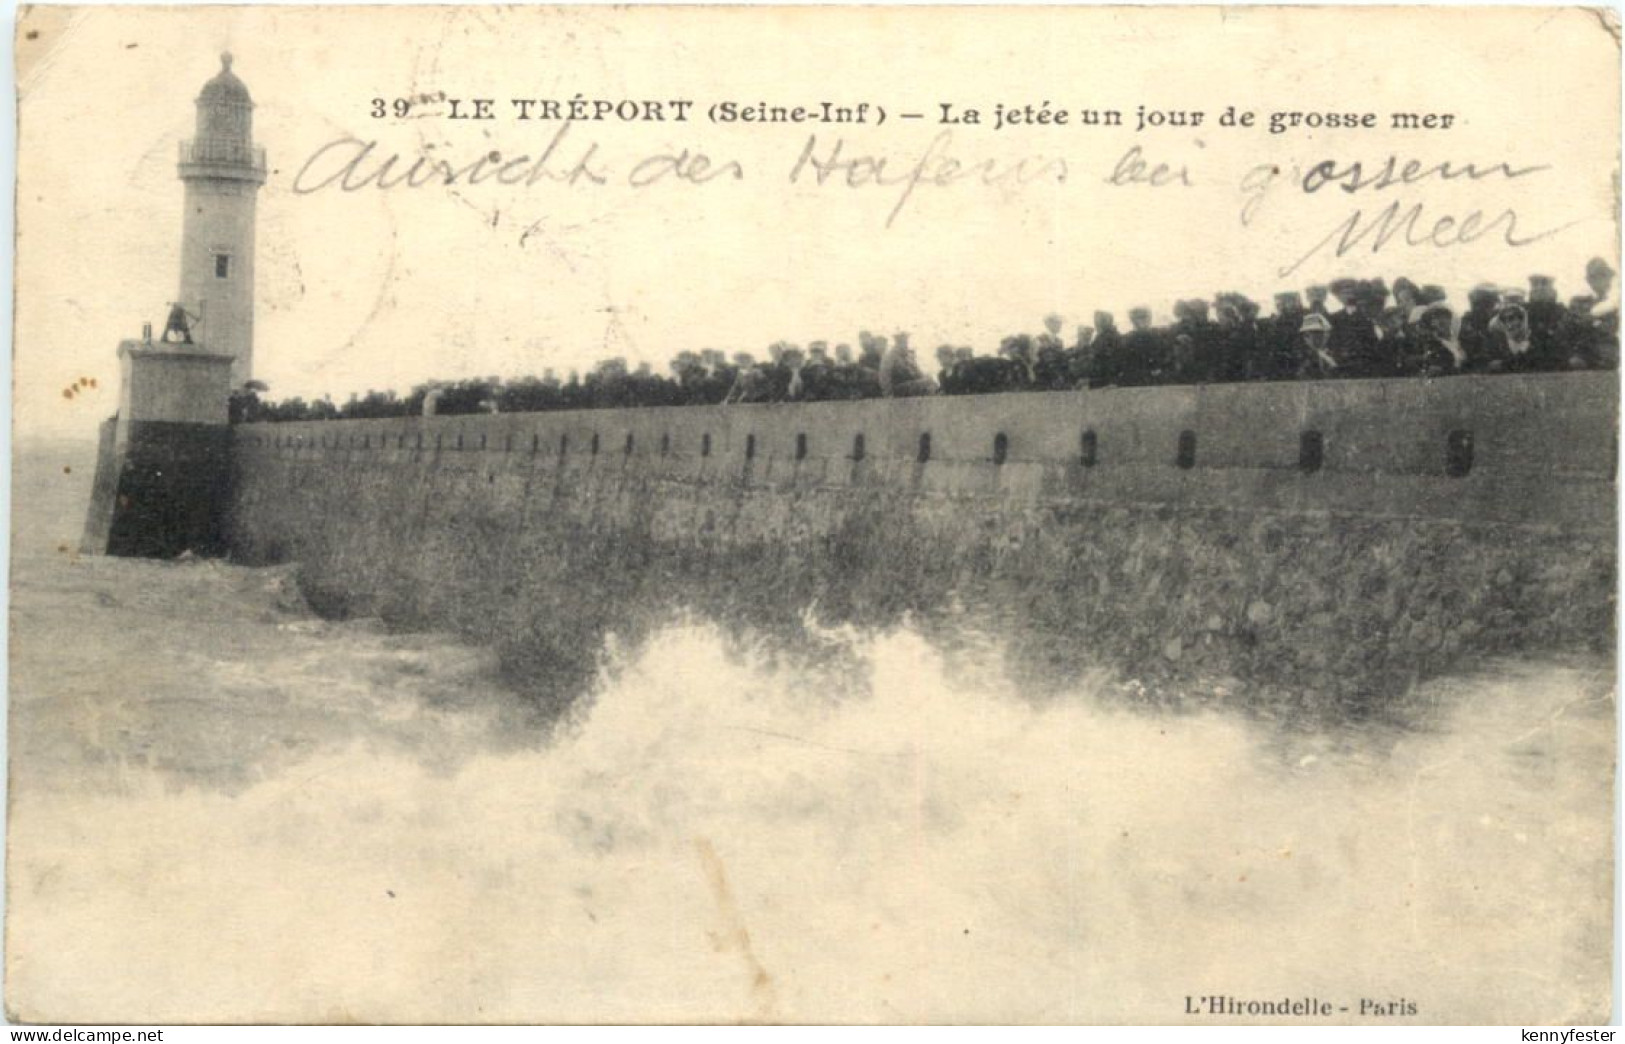 39 LE TRÉPORT (Seine-Inf) — La jetée un jour de grosse mer
Ansicht des Hafens bei grossem
Meer
L'Hirondelle - Paris
www.delcampe.net
kennyfester